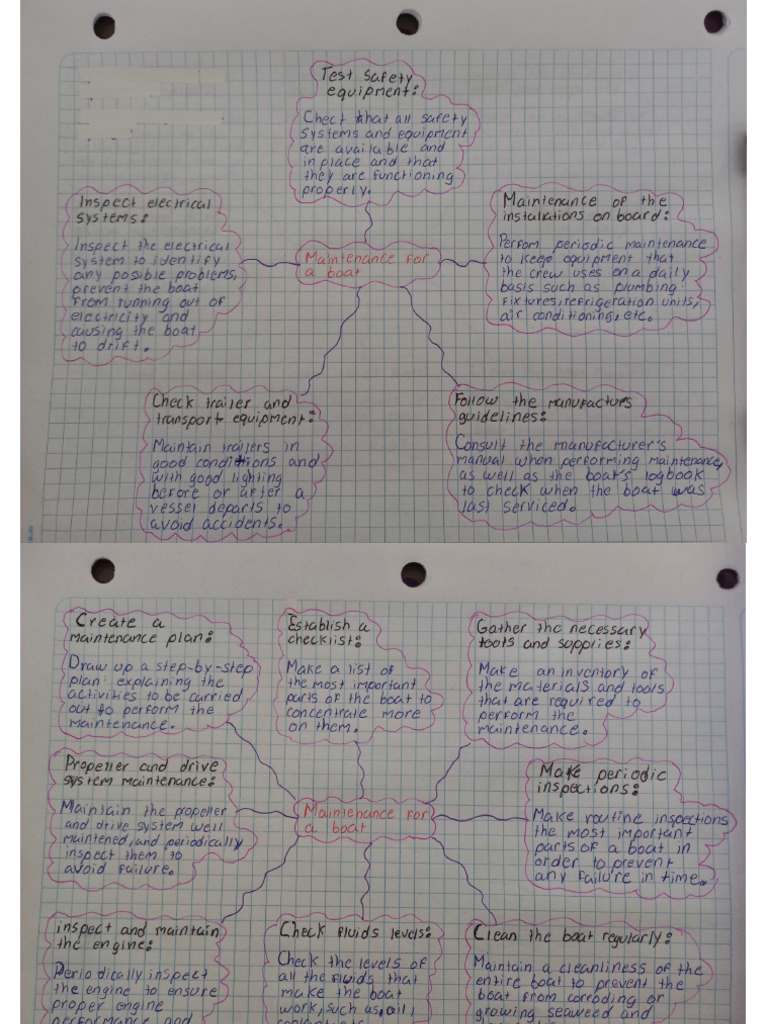 Test safety
equipment:
Check that all safety
systems and equipment
are available and
in place and that
they are functioning
properly.
Inspect electrical
systems:
Inspect the electrical
system to identify
any possible problems,
prevent the boat
from running out of
electricity and
causing the boat
to drift.
Maintenance for
a boat
Maintenance of the
installations on board:
Perfom periodic maintenance
to keep equipment that
the crew uses on a daily
basis such as plumbing
fixtures, refrigeration units,
air conditioning, etc.
Check trailer and
transport equipment:
Maintain trailers in
good conditions and
with good lighting
before or after a
vessel departs to
avoid accidents.
Follow the manufacturs
guidelines:
Consult the manufacturer's
manual when performing maintenance,
as well as the boat's logbook
to check when the boat was
last serviced.
Create a
maintenance plan:
Draw up a step-by-step
plan explaining the
activities to be carried
out to perform the
maintenance.
Establish a
checklist:
Make a list of
the most important
parts of the boat to
concentrate more
on them.
Gather the necessary
tools and supplies:
Make an inventory of
the materials and tools
that are required to
perform the
maintenance.
Propeller and drive
system maintenance:
Maintain the propeller
and drive system well
maintened, and periodically
inspect them to
avoid failure.
Maintenance for
a boat
Make periodic
inspections:
Make routine inspections
the most important
parts of a boat in
order to prevent
any failure in time.
inspect and maintain
the engine:
Periodically inspect
the engine to ensure
proper engine
performance and
Check fluids levels:
Check the levels of
all the fluids that
make the boat
work, such as, oil,
Clean the boat regularly:
Maintain a cleanliness of the
entire boat to prevent the
boat from corroding or
growing seaweed and